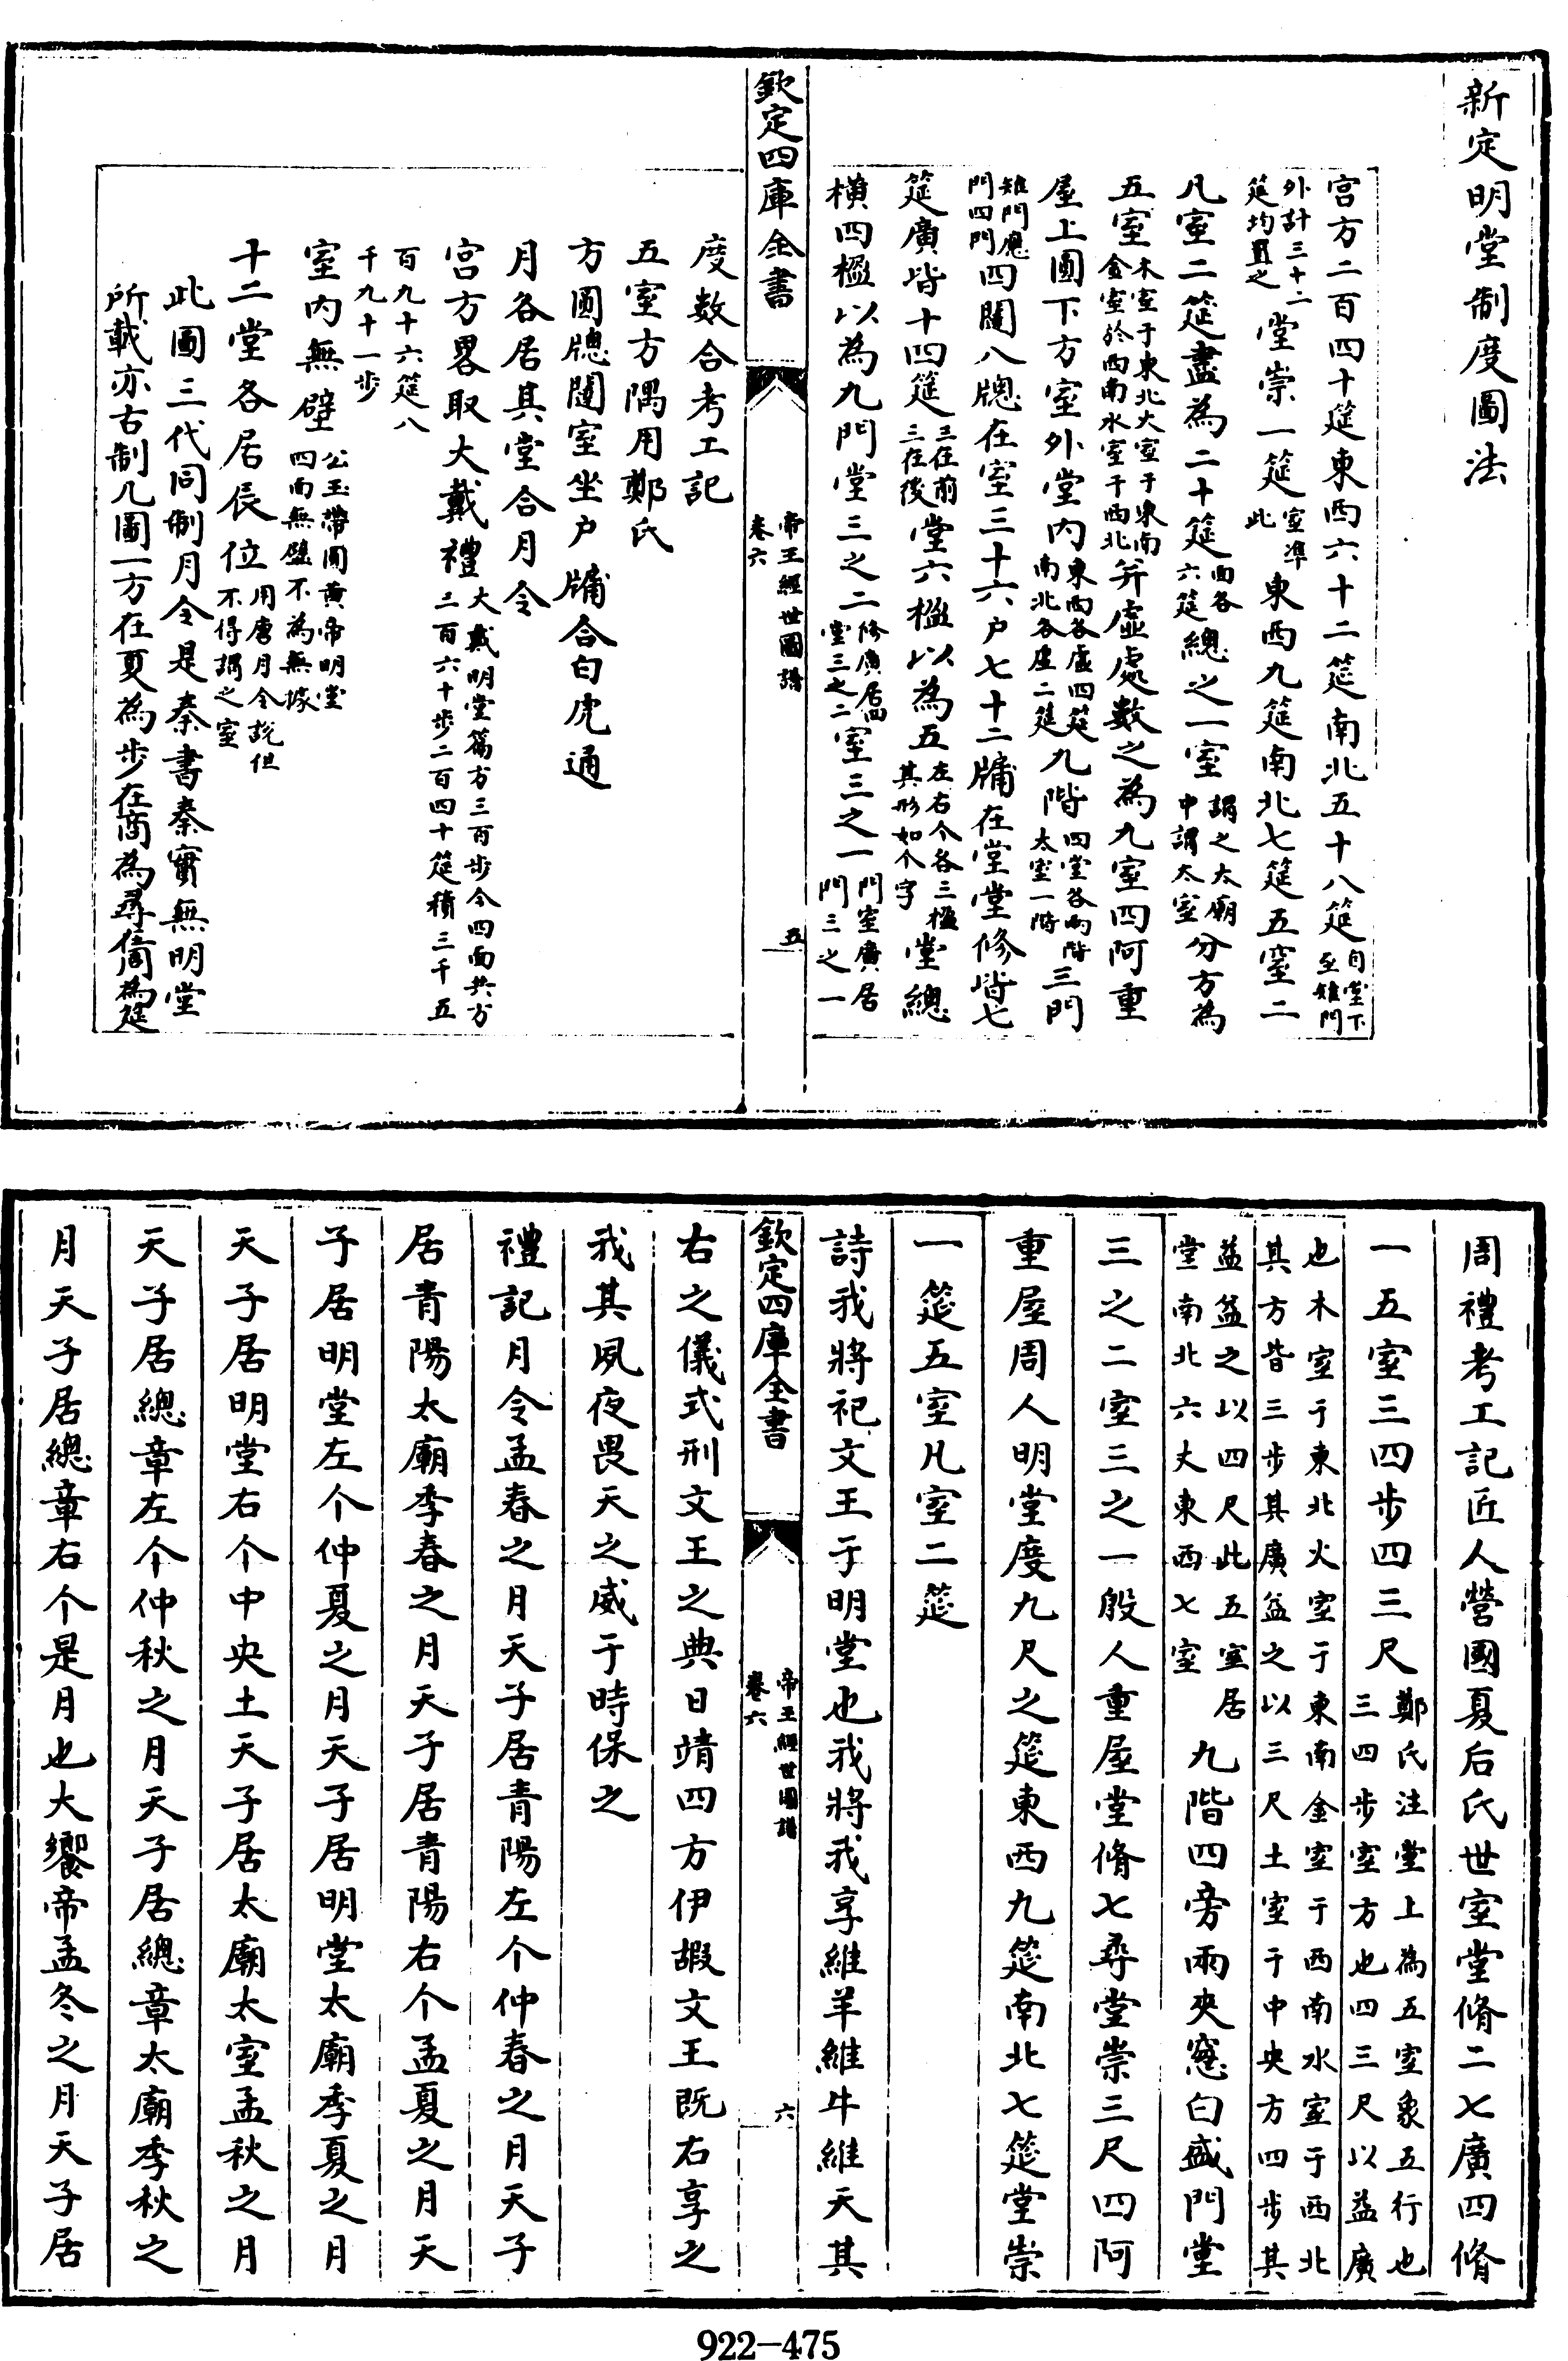 新定明堂制度圖法
宮方二百四十筵東西六十二筵南北五十八筵自堂下至雉門
外計三十二筵均置之堂崇一筵室準此東西九筵南北七筵五室二
凡室二筵盡為二十筵面各六筵總之一室謂之太廟中謂太室分方為
五室木室于東北火室于東南金室於西南水室于西北并虛處數之為九室四阿重
屋上圓下方室外堂內東西各虛四筵南北各虛二筵九階四堂各兩階太室一階三門
雉門應門四門四闥八牕在室三十六户七十二牖在堂堂修皆七
筵廣皆十四筵三在前三在後堂六楹以為五左右个各三楹其形如个字堂總
橫四楹以為九門堂三之二修廣居堂三之二室三之一門室廣居門三之一
欽定四庫全書
帝王經世圖譜
卷六
五
度數合考工記
五室方隅用鄭氏
方圓牕闥室坐户牖合白虎通
月各居其堂合月令
宮方畧取大戴禮大戴明堂篇方三百步今四面共方二百六十步二百四十筵積三千五
百九十六筵八千九十一步
室內無壁公玉帶圖黄帝明堂四面無壁不為無據
十二堂各居辰位用唐月令說但不得謂之室
此圖三代同制月令是秦書秦實無明堂
所載亦古制凡圖一方在夏為步在商為尋在周為筵
周禮考工記匠人營國夏后氏世室堂脩二七廣四脩
一五室三四步四三尺鄭氏注堂上為五室象五行也三四步室方也四三尺以益廣
也木室于東北火室于東南金室于西南水室于西北其方皆三步其廣益之以三尺土室于中央方四步其
益益之以四尺此五室居堂南北六丈東西七室九階四旁兩夾窻白盛門堂
三之二室三之一殷人重屋堂脩七尋堂崇三尺四阿
重屋周人明堂度九尺之筵東西九筵南北七筵堂崇
一筵五室凡室二筵
詩我將祀文王于明堂也我將我享維羊維牛維天其
欽定四庫全書
帝王經世圖譜
卷六
六
右之儀式刑文王之典日靖四方伊嘏文王既右享之
我其夙夜畏天之威于時保之
禮記月令孟春之月天子居青陽左个仲春之月天子
居青陽太廟季春之月天子居青陽右个孟夏之月天
子居明堂左个仲夏之月天子居明堂太廟季夏之月
天子居明堂右个中央土天子居太廟太室孟秋之月
天子居總章左个仲秋之月天子居總章太廟季秋之
月天子居總章右个是月也大饗帝孟冬之月天子居
922-475